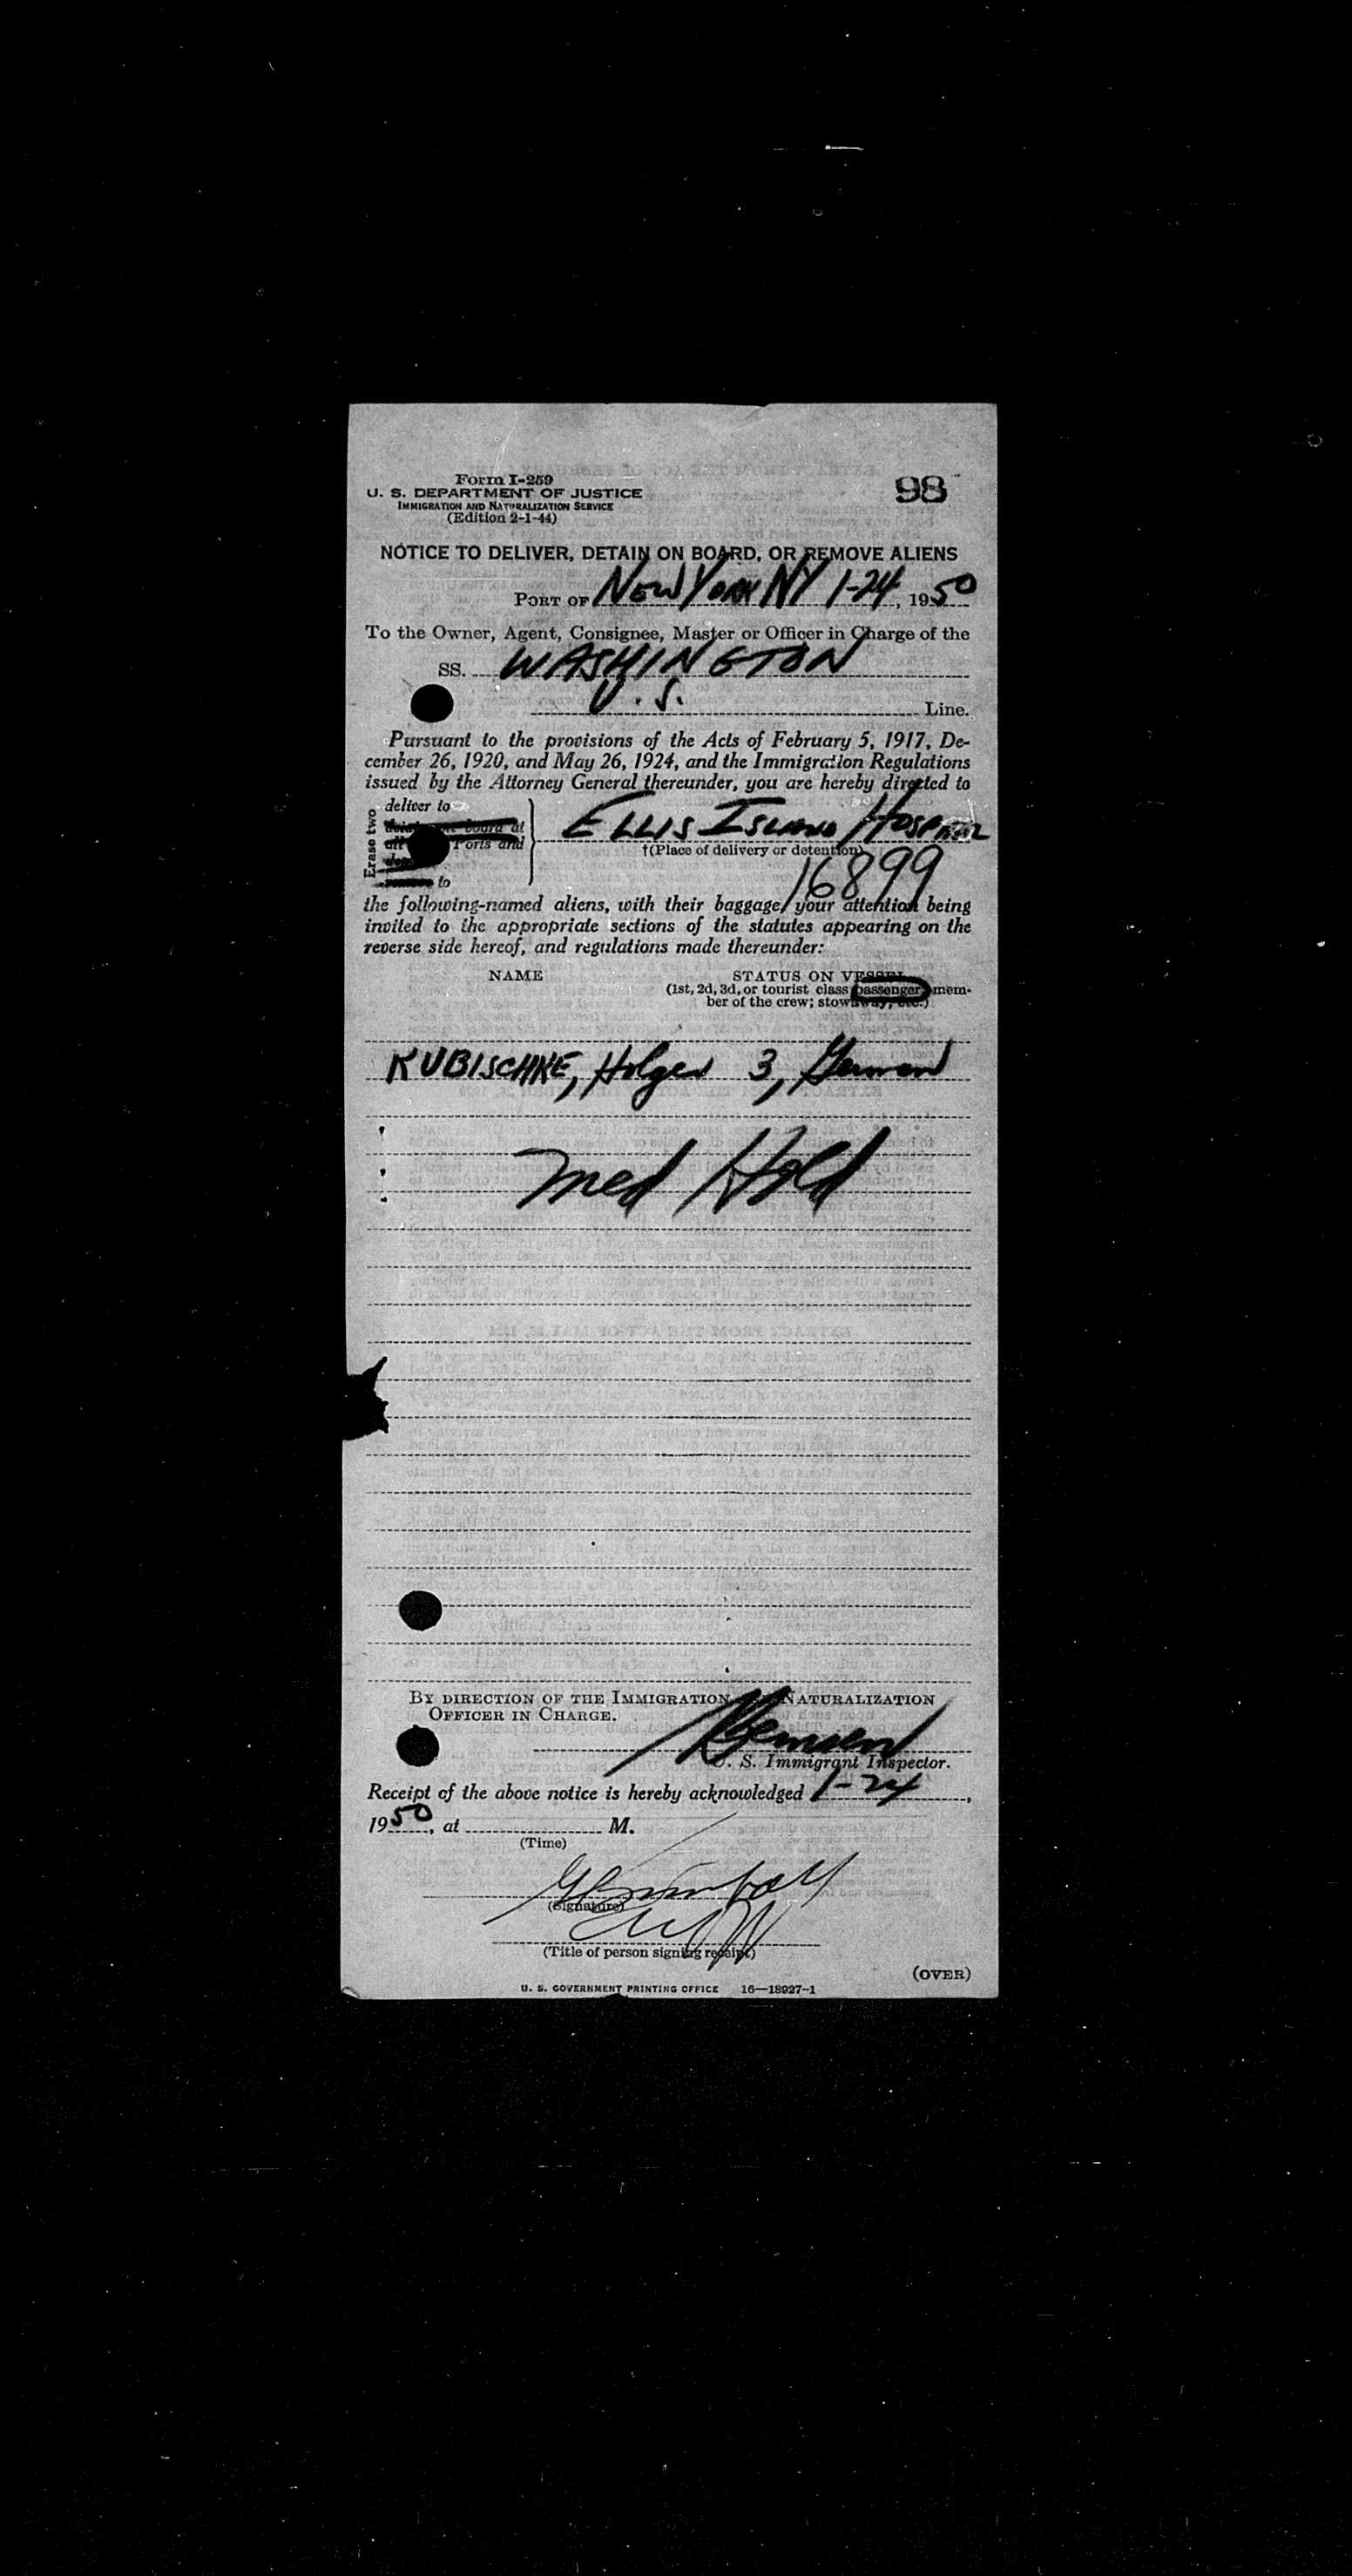 Form I-259
U. S. DEPARTMENT OF JUSTICE
IMMIGRATION AND NATURALIZATION SERVICE
(Edition 2-1-44)
98
NOTICE TO DELIVER, DETAIN ON BOARD, OR REMOVE ALIENS
PORT OF NEW YORK NY 1-24, 1950
To the Owner, Agent, Consignee, Master or Officer in Charge of the
SS. WASHINGTON
U. S. Line.
Pursuant to the provisions of the Acts of February 5, 1917, De-
cember 26, 1920, and May 26, 1924, and the Immigration Regulations
issued by the Attorney General thereunder, you are hereby directed to
Erase two
deliver to
board at
Ports and
to
ELLIS ISLAND HOSPITAL
†(Place of delivery or detention)
16899
the following-named aliens, with their baggage, your attention being
invited to the appropriate sections of the statutes appearing on the
reverse side hereof, and regulations made thereunder:
NAME
STATUS ON VESSEL
(1st, 2d, 3d, or tourist class passenger; mem-
ber of the crew; stowaway, etc.)
KUBISCHKE, Holger 3, German
Med Hold
BY DIRECTION OF THE IMMIGRATION AND NATURALIZATION
OFFICER IN CHARGE.
U. S. Immigrant Inspector.
Receipt of the above notice is hereby acknowledged 1-24,
1950, at M.
(Time)
(Signature)
(Title of person signing receipt)
(OVER)
U. S. GOVERNMENT PRINTING OFFICE 16—18927-1